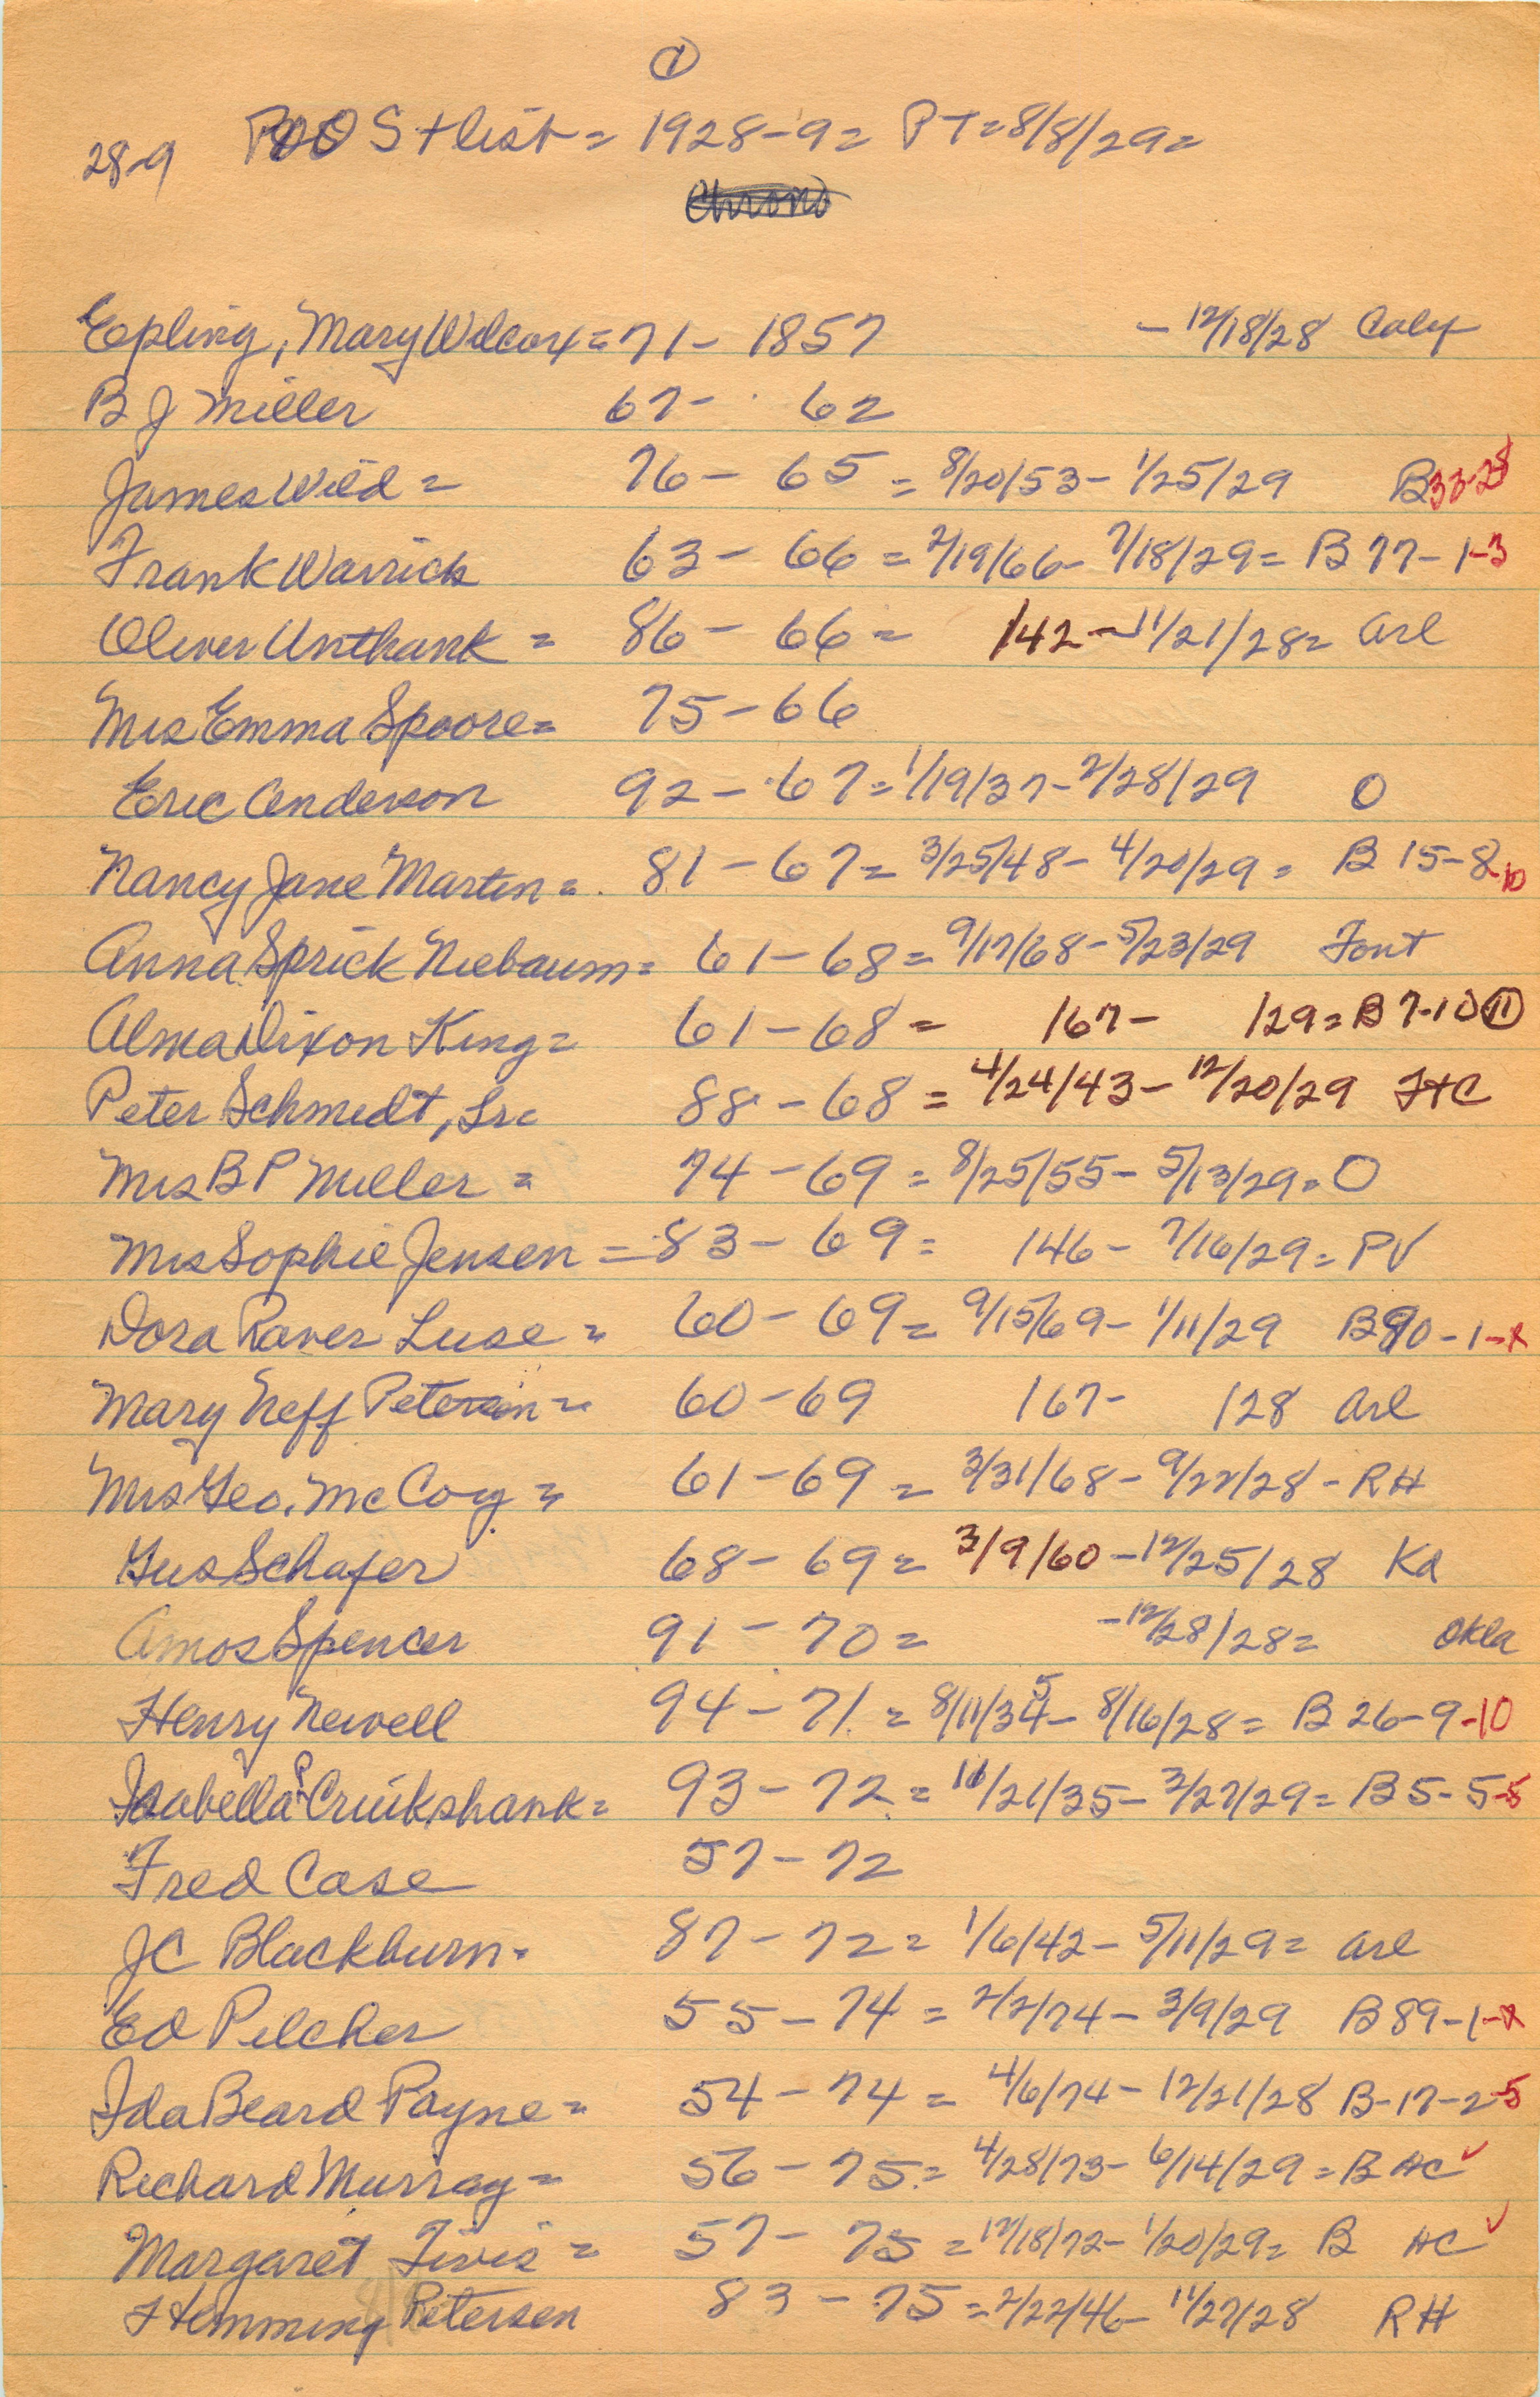 ①
28-9 POO S + list = 1928-9 = PT = 8/8/29 =
Chrono
Epling, Mary Wilcox = 71 - 1857 - 12/18/28 Calif
B J Miller 67 - 62
James Wild = 76 - 65 = 8/20/53 - 1/25/29 B 33-28
Frank Warrick 63 - 66 = 2/19/66 - 7/18/29 = B 77-1-3
Oliver Unthank = 86 - 66 = 142 - 11/21/28 = Arl
Mrs Emma Spoore = 75 - 66
Eric Anderson 92 - 67 = 1/19/37 - 2/28/29 O
Nancy Jane Martin = 81 - 67 = 3/25/48 - 4/20/29 = B 15-8-10
Anna Sprick Niebaum = 61 - 68 = 9/17/68 - 5/23/29 Font
Alma Dixon King = 61 - 68 = 167 - 129 = B 7-10 ⑪
Peter Schmidt, Sr = 88 - 68 = 4/24/43 - 12/20/29 FtC
Mrs B P Miller = 74 - 69 = 8/25/55 - 5/13/29 = O
Mrs Sophie Jensen = 83 - 69 = 146 - 7/16/29 = PV
Dora Raver Luse = 60 - 69 = 9/15/69 - 1/11/29 B 90-1-x
Mary Neff Petersen = 60 - 69 167 - 128 Arl
Mrs Geo. McCoy = 61 - 69 = 3/31/68 - 9/22/28 - RH
Gus Schafer 68 - 69 = 3/9/60 - 12/25/28 Ka
Amos Spencer 91 - 70 = - 12/28/28 = Okla
Henry Newell 94 - 71 = 8/11/34 5 - 8/16/28 = B 26-9-10
Isabella P Cruikshank = 93 - 72 = 11/21/35 - 3/27/29 = B 5-5-5
Fred Case 57 - 72
JC Blackburn = 87 - 72 = 1/6/42 - 5/11/29 = Arl
Ed Pilcher 55 - 74 = 2/2/74 - 3/9/29 B 89-1-x
Ida Beard Payne = 54 - 74 = 4/6/74 - 12/21/28 B-17-2-5
Richard Murray = 56 - 75 = 4/28/73 - 6/14/29 = B HC ✓
Margaret Tivis = 57 - 75 = 12/18/72 - 1/20/29 = B HC ✓
Hemming Petersen 83 - 75 = 2/22/46 - 11/27/28 RH